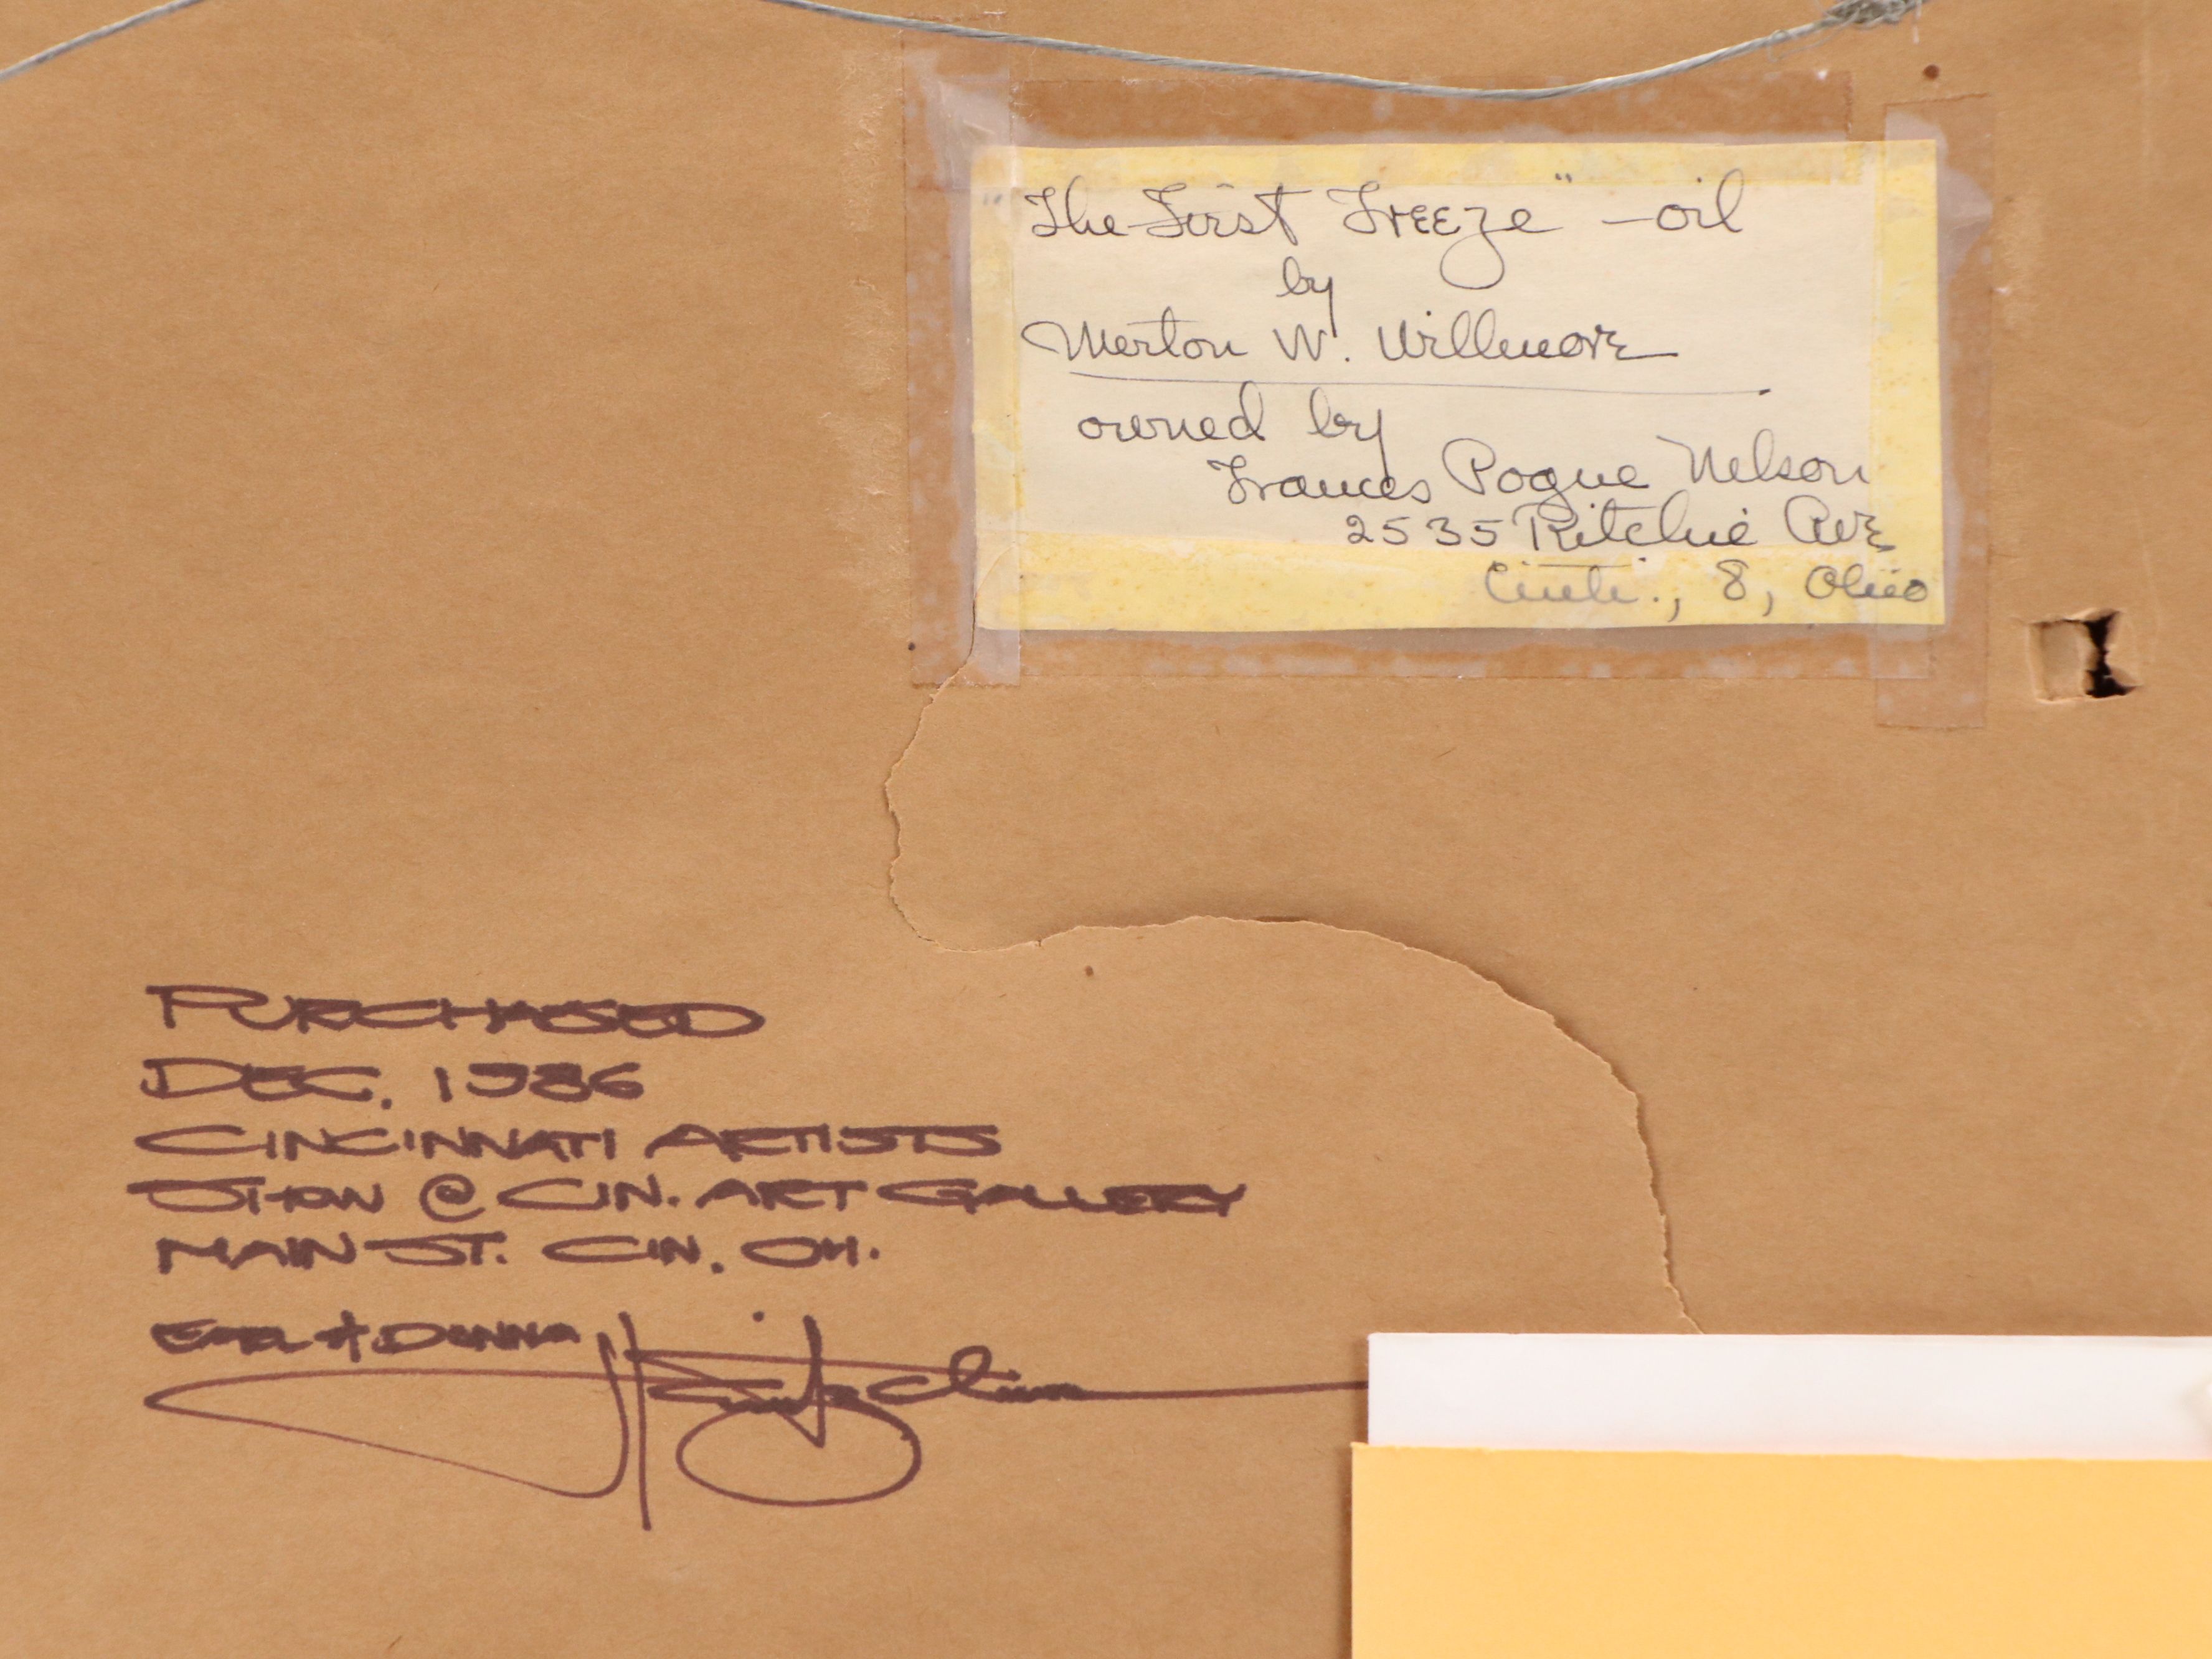 "The First Freeze" - oil
by
Merton W. Willmore
owned by
Frances Pogue Nelson
2535 Ritchie Ave
Cinti., 8, Ohio
PURCHASED
DEC. 1986
CINCINNATI ARTISTS
SHOW @ CIN. ART GALLERY
MAIN ST. CIN. OH.
EARL + DONNA